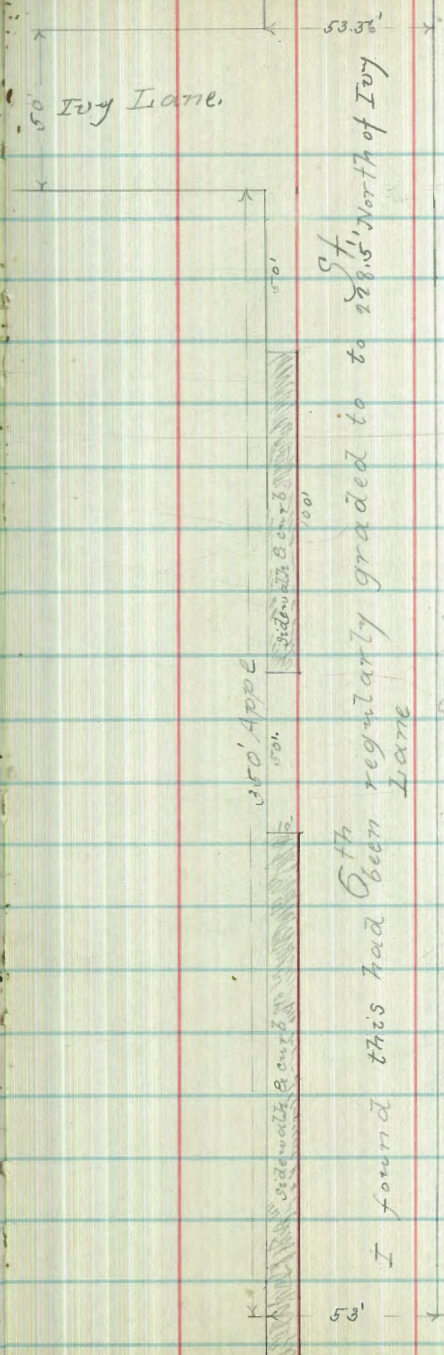 53.36'
50'
Ivy Lane.
50'
sidewalk & curb
100'
350' Appl
50'.
sidewalk & curb
6th St.
I found this had been regularly graded to to 228.5' North of Ivy
Lane
53'